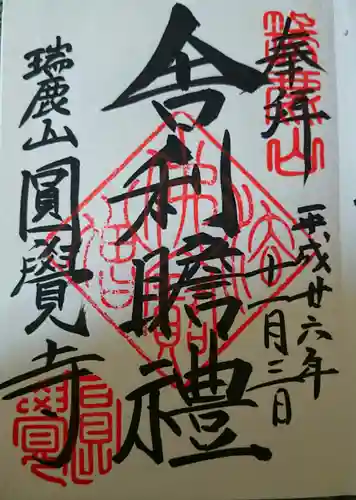 奉拝
平成廿六年
十一月三日
舎利瞻禮
瑞鹿山圓覺寺